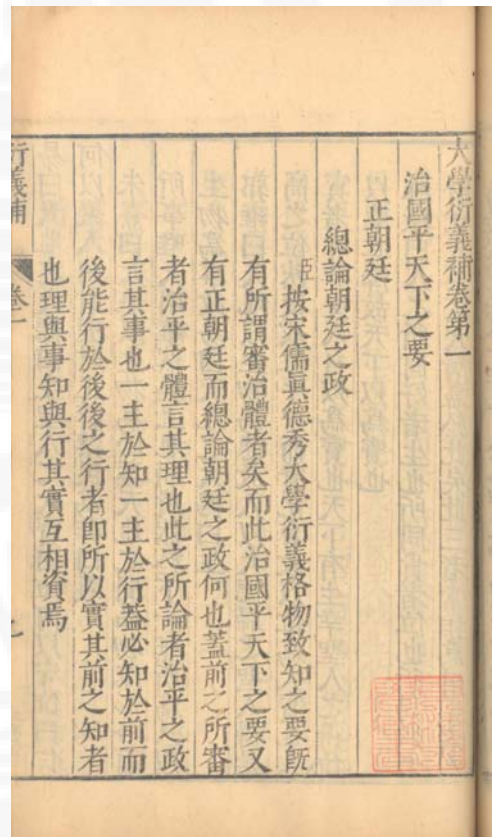 大學衍義補卷第一
治國平天下之要
正朝廷
總論朝廷之政
臣按宋儒真德秀大學衍義格物致知之要旣
有所謂審治體者矣而此治國平天下之要又
有正朝廷而總論朝廷之政何也蓋前之所審
者治平之體言其理也此之所論者治平之政
言其事也一主於知一主於行葢必知於前而
後能行於後後之行者卽所以實其前之知者
也理與事知與行其實互相資焉
衍義補 卷一